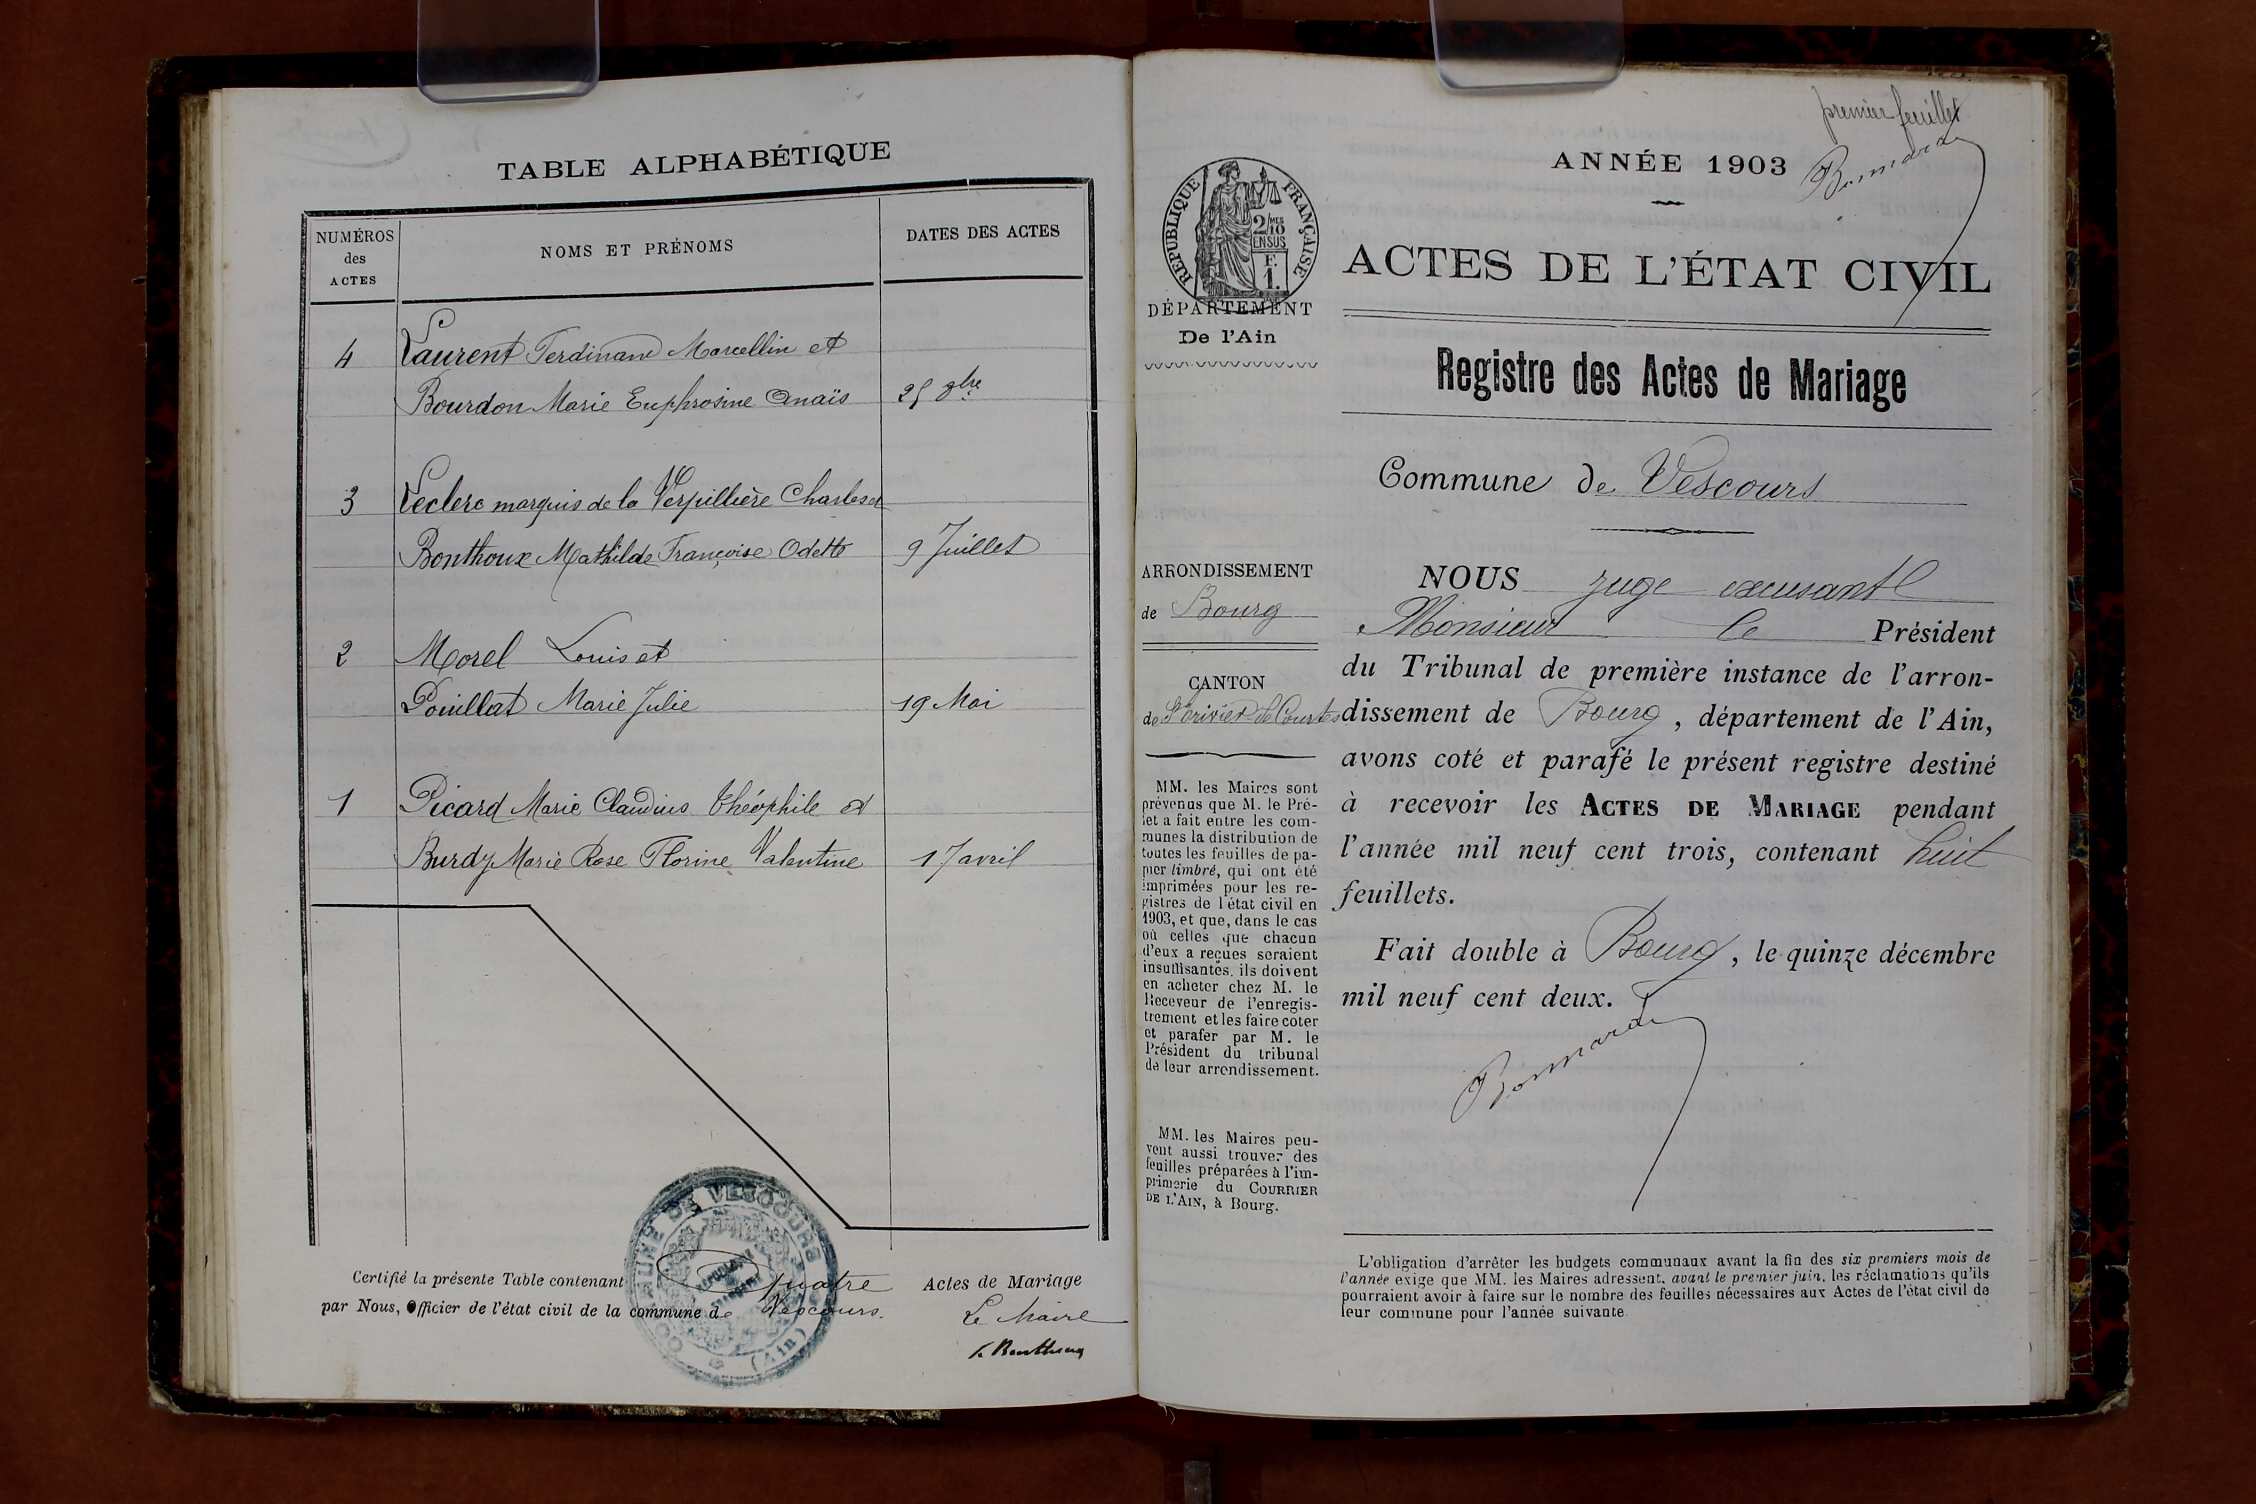 TABLE ALPHABÉTIQUE
NUMÉROS
des
ACTES
NOMS ET PRÉNOMS
DATES DES ACTES
4 Laurent Ferdinand Marcellin et
Bourdon Marie Euphrosine Anaïs 25 9bre
3 Leclerc marquis de la Verpillière Charles et
Bonthoux Mathilde Françoise Odette 9 Juillet
2 Morel Louis et
Pouillat Marie Julie 19 Mai
1 Picard Marie Claudius Théophile et
Burdy Marie Rose Florine Valentine 17 avril
Certifié la présente Table contenant quatre Actes de Mariage
par Nous, Officier de l'état civil de la commune de Vescours.
Le Maire
COMMUNE DE VESCOURS
(Ain)
premier feuillet
Bonnardet
ANNÉE 1903
RÉPUBLIQUE FRANÇAISE
2/10 MES
EN SUS
F.
1.
ACTES DE L'ÉTAT CIVIL
DÉPARTEMENT
De l'Ain
Registre des Actes de Mariage
Commune de Vescours
ARRONDISSEMENT
de Bourg
CANTON
de St Trivier de Courtes
MM. les Maires sont
prévenus que M. le Pré-
fet a fait entre les com-
munes la distribution de
toutes les feuilles de pa-
pier timbré, qui ont été
imprimées pour les re-
gistres de l'état civil en
1903, et que, dans le cas
où celles que chacun
d'eux a reçues seraient
insuffisantes, ils doivent
en acheter chez M. le
Receveur de l'enregis-
trement et les faire coter
et parafer par M. le
Président du tribunal
de leur arrondissement.
MM. les Maires peu-
vent aussi trouver des
feuilles préparées à l'im-
primerie du COURRIER
DE L'AIN, à Bourg.
NOUS juge excusant
Monsieur le Président
du Tribunal de première instance de l'arron-
dissement de Bourg, département de l'Ain,
avons coté et parafé le présent registre destiné
à recevoir les ACTES DE MARIAGE pendant
l'année mil neuf cent trois, contenant huit
feuillets.
Fait double à Bourg, le quinze décembre
mil neuf cent deux.
Bonnardet
L'obligation d'arrêter les budgets communaux avant la fin des six premiers mois de
l'année exige que MM. les Maires adressent, avant le premier juin, les réclamations qu'ils
pourraient avoir à faire sur le nombre des feuilles nécessaires aux Actes de l'état civil de
leur commune pour l'année suivante.